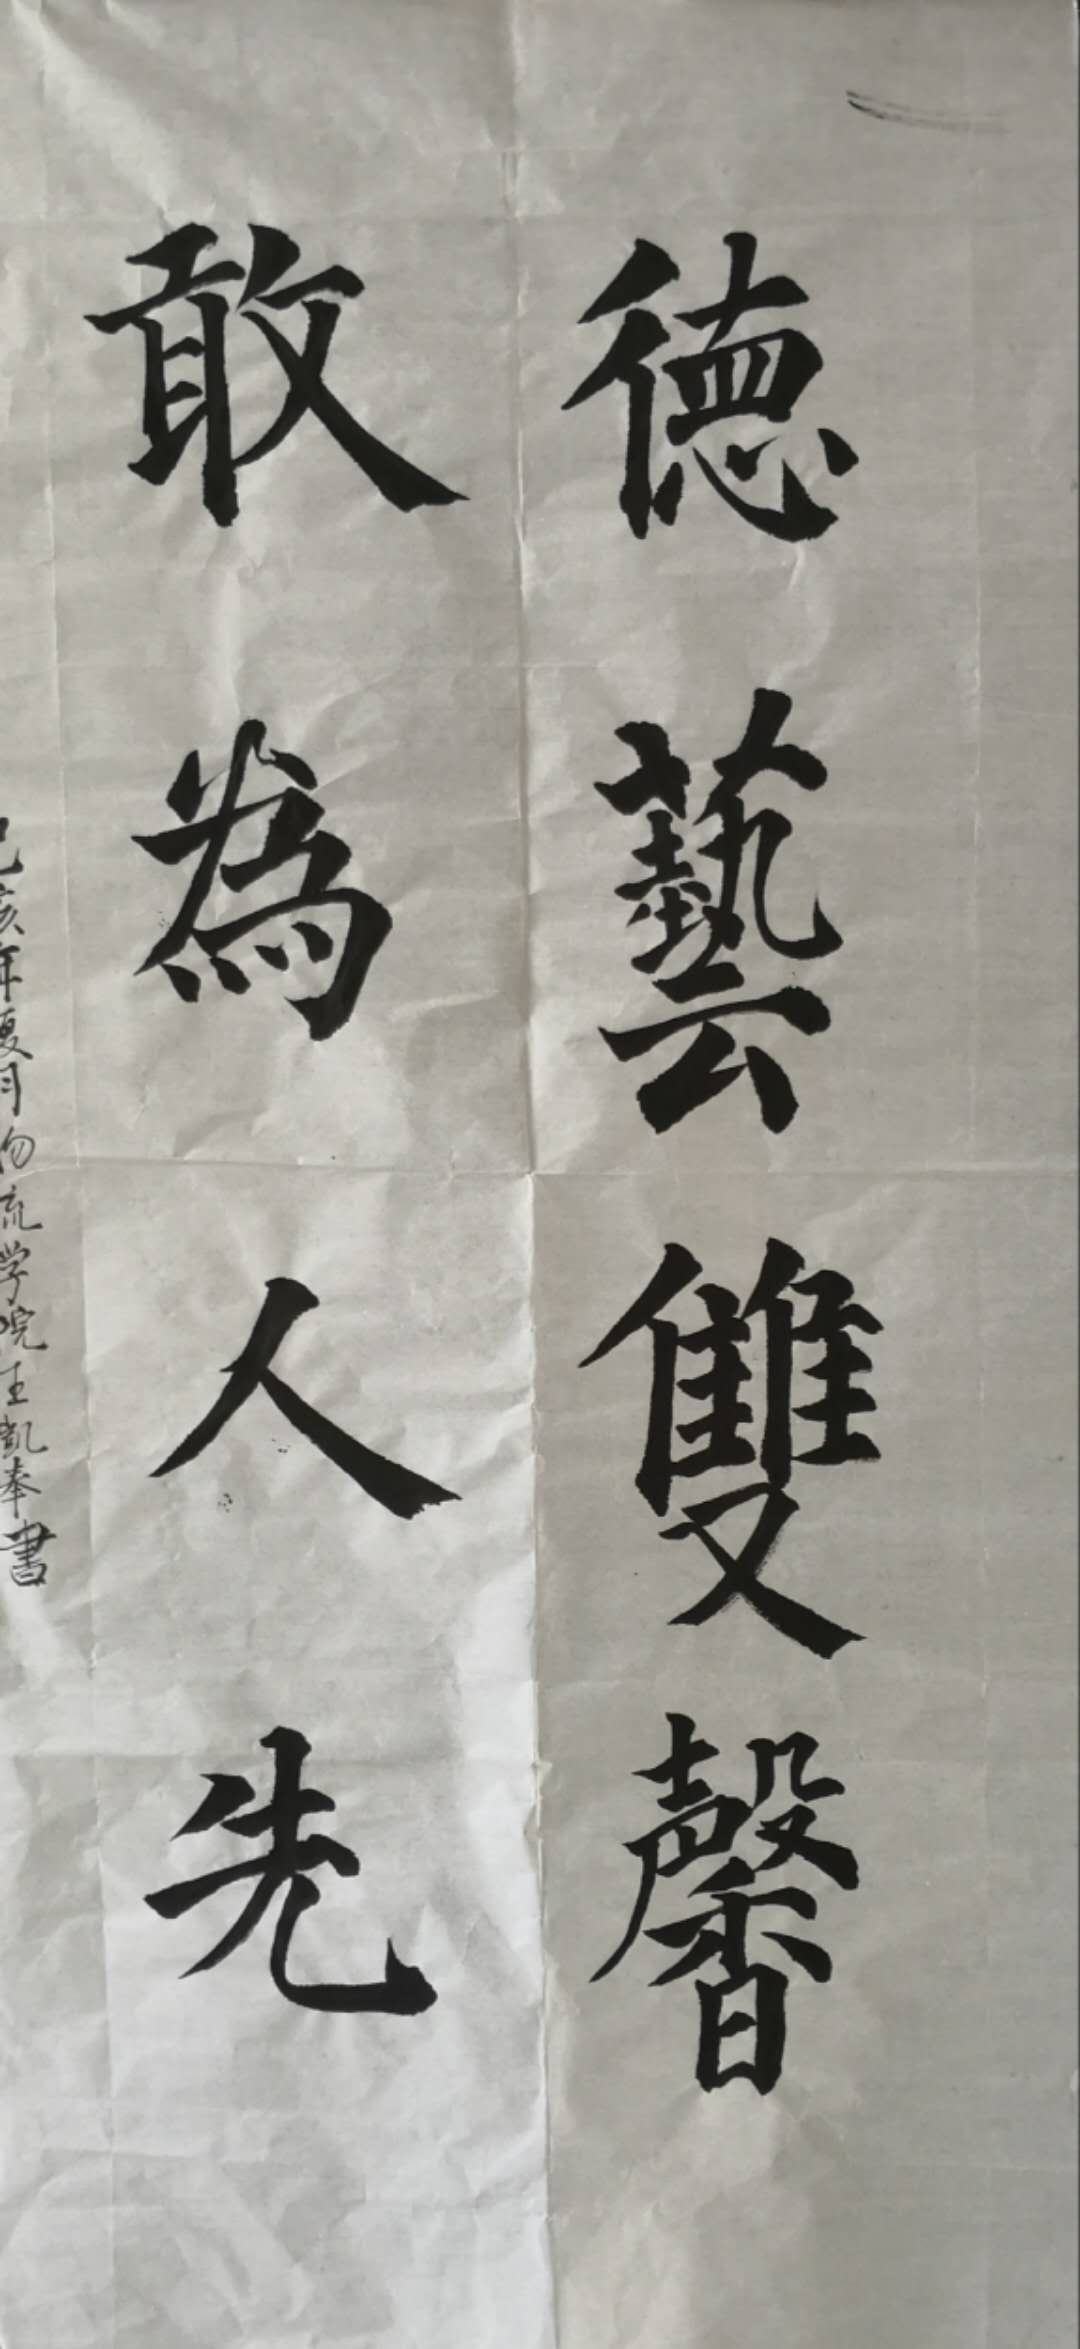 德藝雙馨
敢為人先
己亥年夏月物流学院王凱奉書